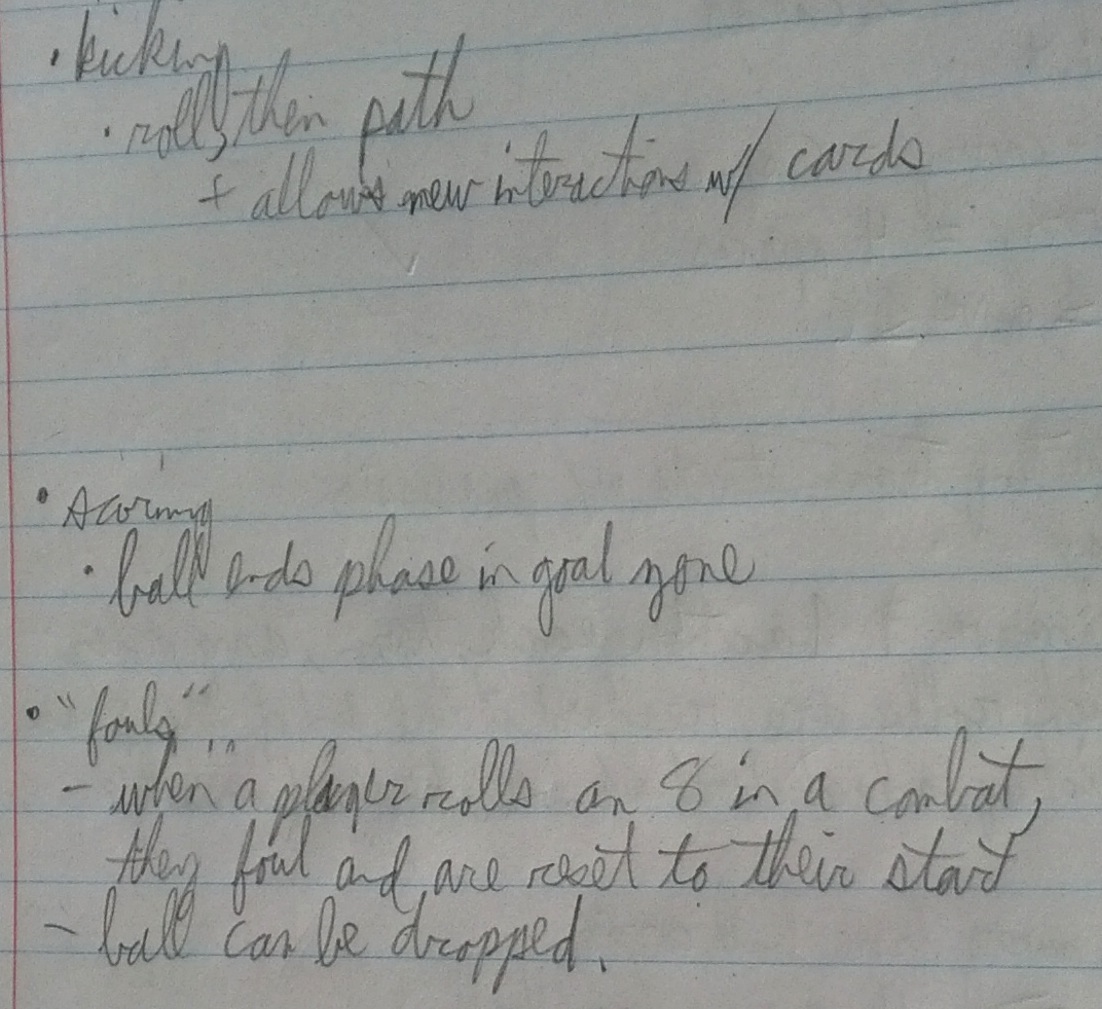 • kicking
• roll, then path
+ allows new interactions w/ cards
• scoring
• ball ends phase in goal zone
• "fouls"
- when a player rolls an 8 in a combat,
they foul and are reset to their start
- ball can be dropped.